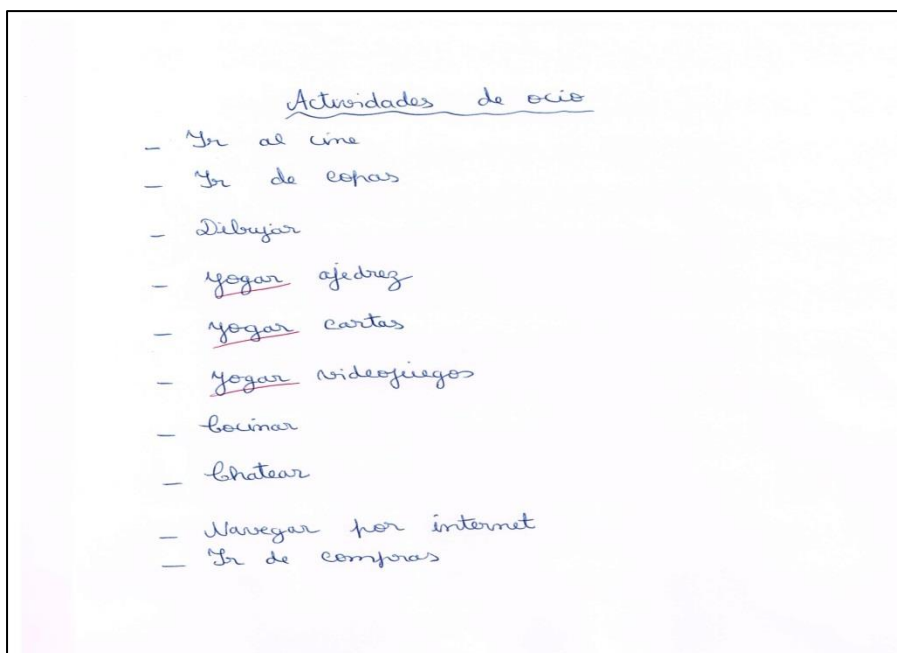 Actividades de ocio
_ Ir al cine
_ Ir de copas
_ Dibujar
_ yogar ajedrez
_ yogar cartas
_ yogar videojuegos
_ Cocinar
_ Chatear
_ Navegar por internet
_ Ir de compras